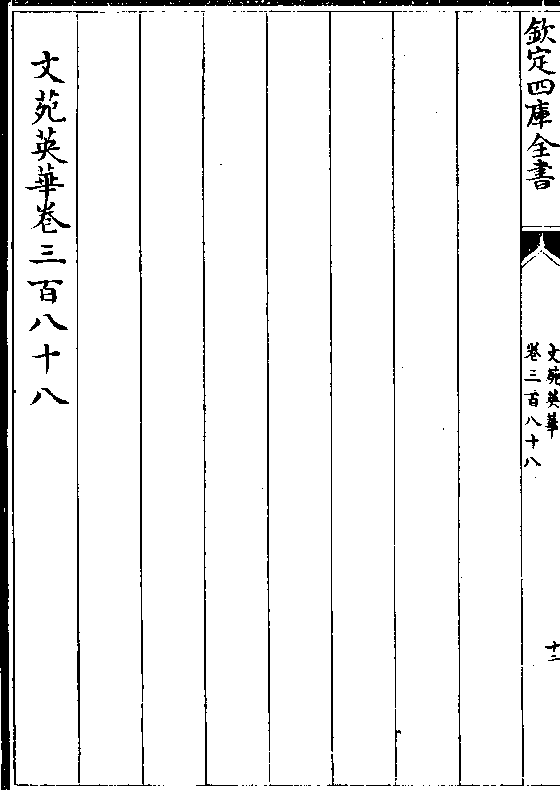 欽定四庫全書
文苑英華
卷三百八十八
十二
文苑英華卷三百八十八